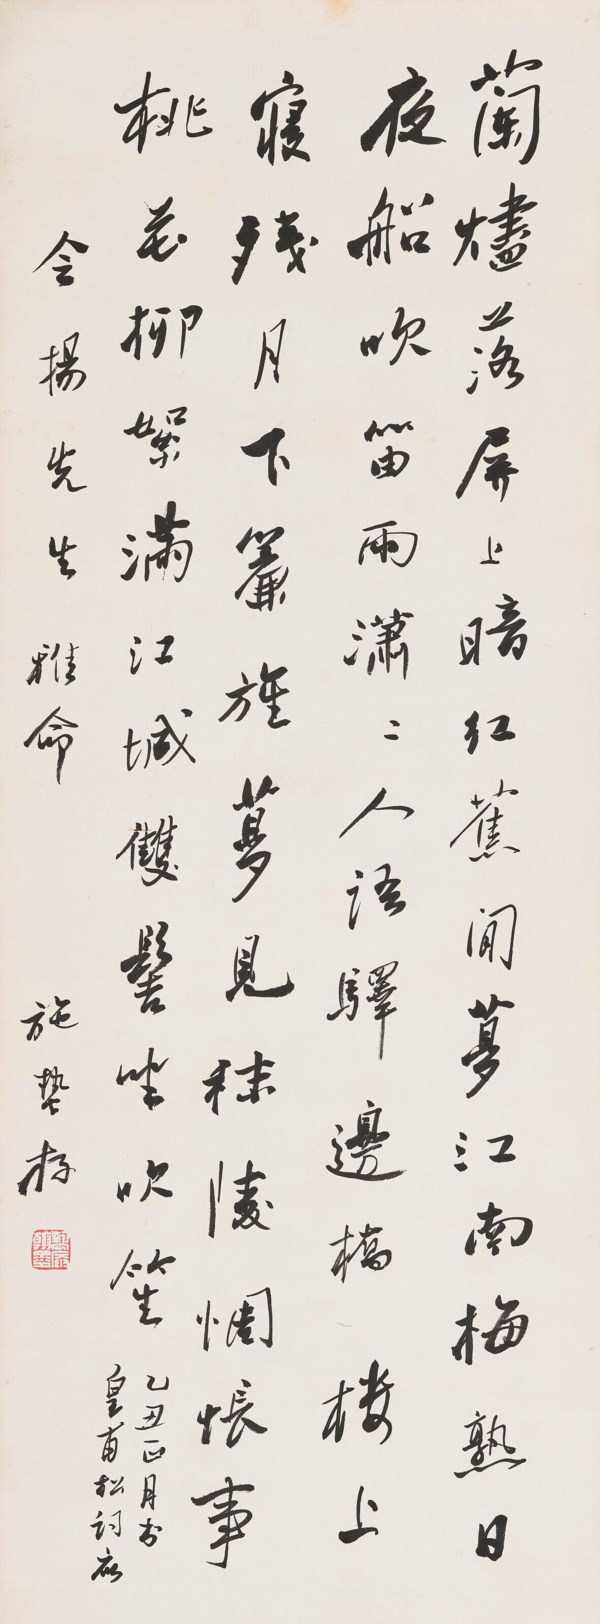 蘭燼落屏上暗紅蕉閒夢江南梅熟日
夜船吹笛雨瀟〻人語驛邊橋樓上
寢殘月下簾旌夢見秣陵惆悵事
桃花柳絮滿江城雙髻坐吹笙
乙丑正月書
皇甫松詞應
令揚先生雅命
施蟄存